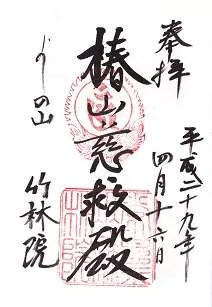 奉拝
平成二十九年
四月十六日
椿山慈救殿
よしの山
竹林院